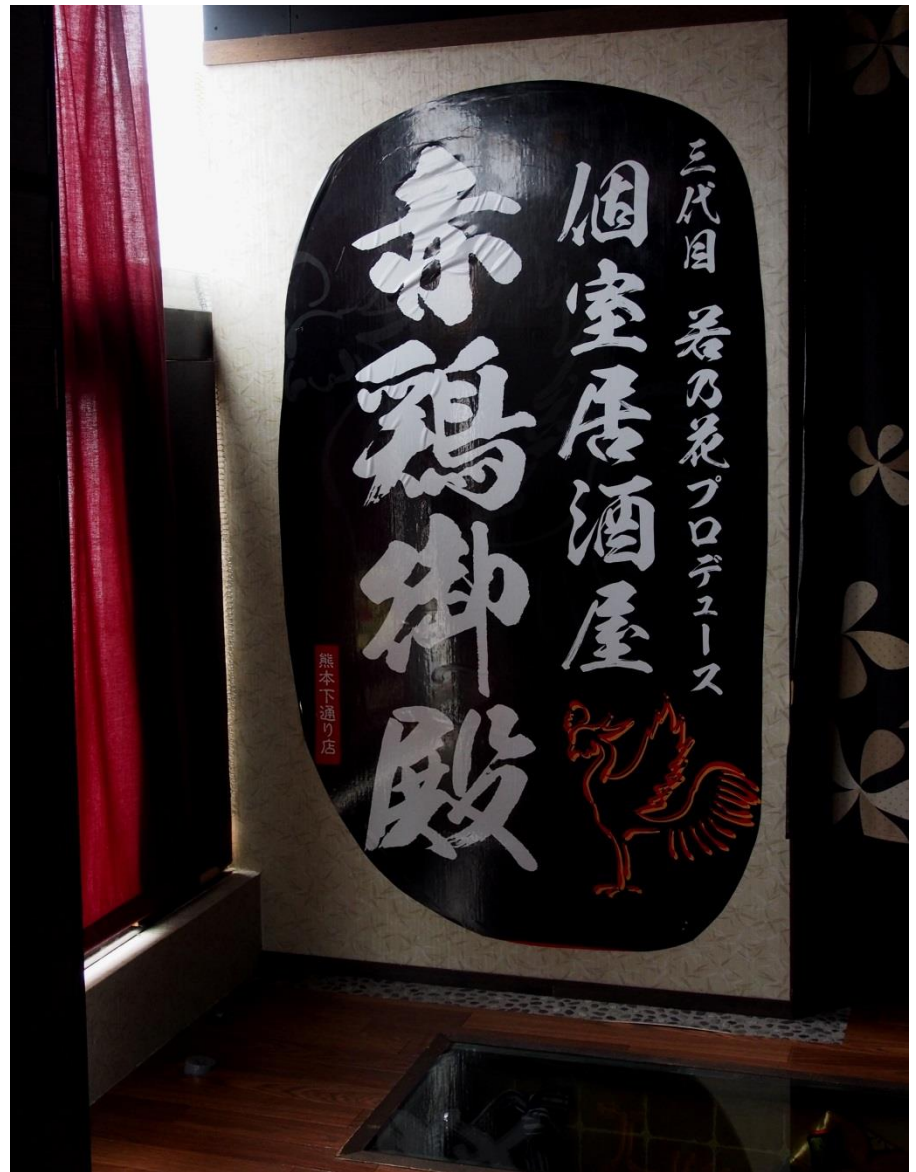 三代目 若乃花プロデュース
個室居酒屋
赤鶏御殿
熊本下通り店